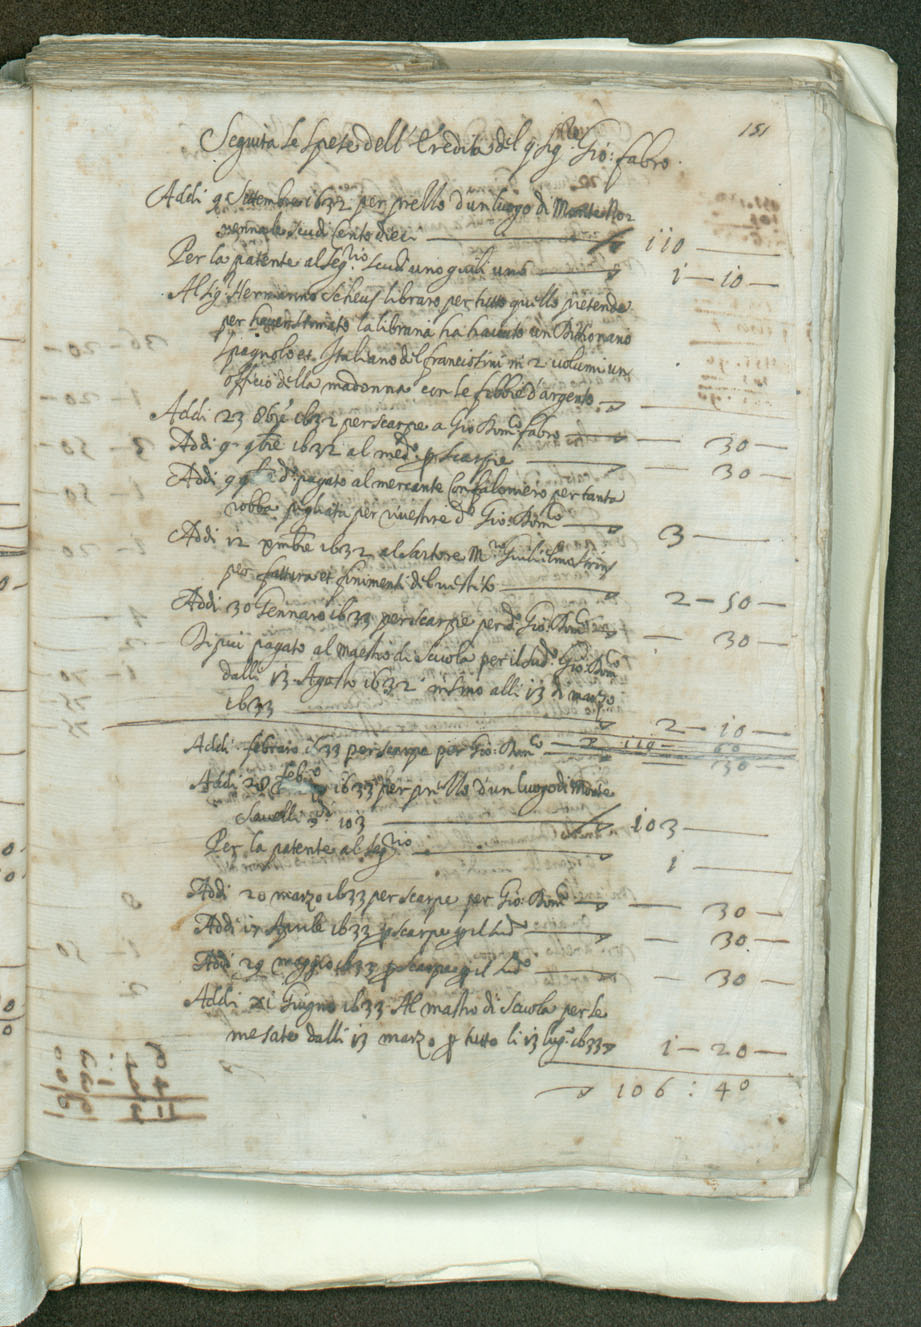 151
Seguita le spese dell'Eredita del q Sig.r Gio: fabro.
Addi 9 Settembre 1632 per prezzo d'un luogo di Monte Nov
scudi cento dieci 110
Per la patente al Seg.rio scudi uno giuli uno 1-10
Al Sig. Hermanno Scheus libraro per tutto quello pretende
per haver stimato la libraria ha havuto un Ditionario
Spagnolo et Italiano del franciosini in 2 volumi un
offitio della madonna con le febbie d'argento
Addi 23 8bre 1632 per scarpe a Gio Dom.co fabro 30
Addi 9 9bre 1632 al med.o p scarpe 30
Addi 9 d.o pagato al mercante per tanta
robba pigliata per vestire d.o Gio: Dom.co 3
Addi 12 Xmbre 1632 al sartore M.ro
per fattura et finimenti del vestito 2-50
Addi 30 Gennaro 1633 per scarpe per d.o Gio: Dom.co 30
Di piu pagato al maestro di Scuola per il sud.o Gio: Dom.co
dalli 13 Agosto 1632 insino alli 13 di marzo
1633 2-10
119-60
Addi febraio 1633 per scarpe per Gio: Dom.co 30
Addi 28 febr.o 1633 per prezzo d'un luogo di Monte
Savelli 103 103
Per la patente al Seg.rio 1
Addi 20 marzo 1633 per scarpe per Gio: Dom.co 30
Addi 17 Aprile 1633 p scarpe p il sud.o 30
Addi 29 maggio 1633 p scarpe p il sud.o 30
Addi XI Giugno 1633 Al mastro di Scuola per le
mesate dalli 13 marzo p tutto li 13 lug.o 1633 1-20
106:40